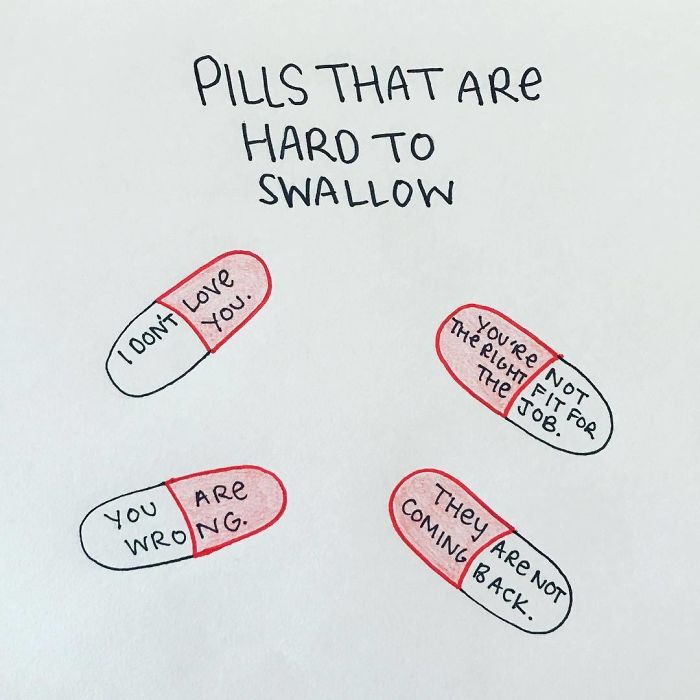 PILLS THAT ARe
HARD TO
SWALLOW
I DON'T LOVe
YOU.
YOU'Re NOT
THe RIGHT FIT FOR
THe JOB.
YOU ARe
WRONG.
THey ARe NOT
COMING BACK.